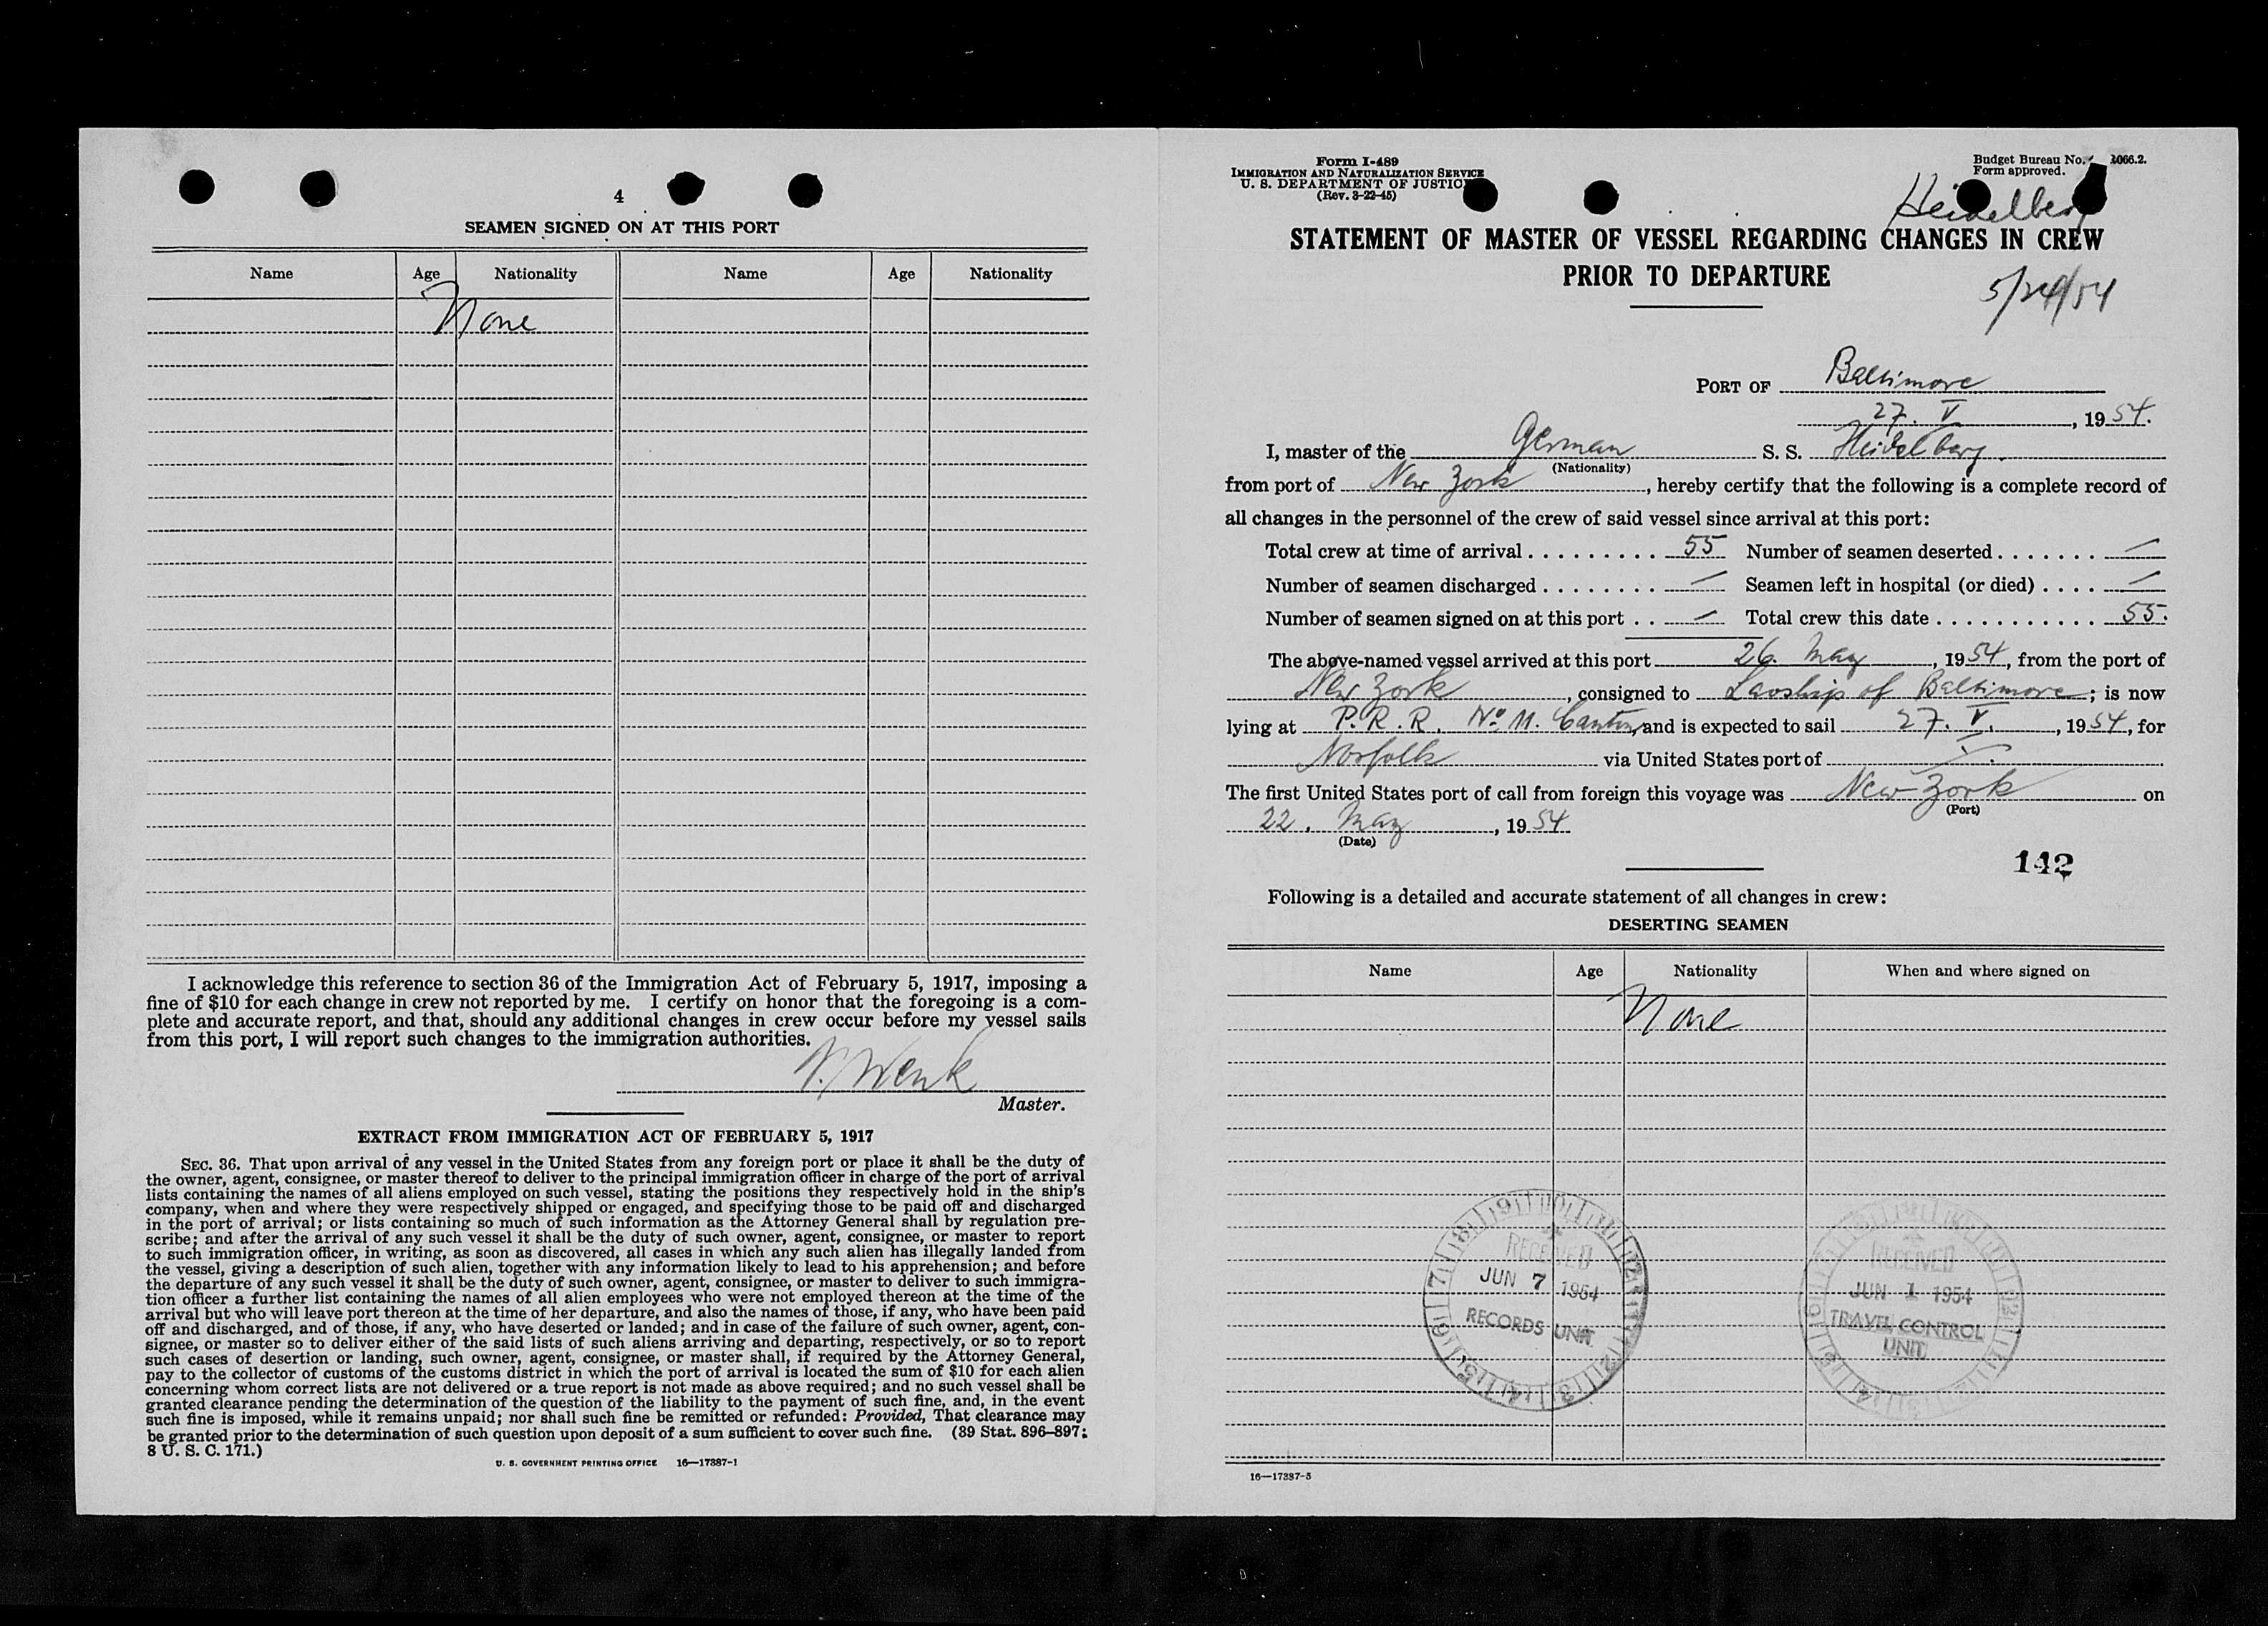 4
SEAMEN SIGNED ON AT THIS PORT
Name Age Nationality Name Age Nationality
None
I acknowledge this reference to section 36 of the Immigration Act of February 5, 1917, imposing a
fine of $10 for each change in crew not reported by me. I certify on honor that the foregoing is a com-
plete and accurate report, and that, should any additional changes in crew occur before my vessel sails
from this port, I will report such changes to the immigration authorities.
Wenk
Master.
EXTRACT FROM IMMIGRATION ACT OF FEBRUARY 5, 1917
SEC. 36. That upon arrival of any vessel in the United States from any foreign port or place it shall be the duty of
the owner, agent, consignee, or master thereof to deliver to the principal immigration officer in charge of the port of arrival
lists containing the names of all aliens employed on such vessel, stating the positions they respectively hold in the ship's
company, when and where they were respectively shipped or engaged, and specifying those to be paid off and discharged
in the port of arrival; or lists containing so much of such information as the Attorney General shall by regulation pre-
scribe; and after the arrival of any such vessel it shall be the duty of such owner, agent, consignee, or master to report
to such immigration officer, in writing, as soon as discovered, all cases in which any such alien has illegally landed from
the vessel, giving a description of such alien, together with any information likely to lead to his apprehension; and before
the departure of any such vessel it shall be the duty of such owner, agent, consignee, or master to deliver to such immigra-
tion officer a further list containing the names of all alien employees who were not employed thereon at the time of the
arrival but who will leave port thereon at the time of her departure, and also the names of those, if any, who have been paid
off and discharged, and of those, if any, who have deserted or landed; and in case of the failure of such owner, agent, con-
signee, or master so to deliver either of the said lists of such aliens arriving and departing, respectively, or so to report
such cases of desertion or landing, such owner, agent, consignee, or master shall, if required by the Attorney General,
pay to the collector of customs of the customs district in which the port of arrival is located the sum of $10 for each alien
concerning whom correct lists are not delivered or a true report is not made as above required; and no such vessel shall be
granted clearance pending the determination of the question of the liability to the payment of such fine, and, in the event
such fine is imposed, while it remains unpaid; nor shall such fine be remitted or refunded: Provided, That clearance may
be granted prior to the determination of such question upon deposit of a sum sufficient to cover such fine. (39 Stat. 896–897;
8 U. S. C. 171.)
U. S. GOVERNMENT PRINTING OFFICE 16—17387-1
Form I-489
IMMIGRATION AND NATURALIZATION SERVICE
U. S. DEPARTMENT OF JUSTICE
(Rev. 3-22-45)
Budget Bureau No. 1066.2.
Form approved.
Heidelberg
STATEMENT OF MASTER OF VESSEL REGARDING CHANGES IN CREW
PRIOR TO DEPARTURE
5/24/54
PORT OF Baltimore
27. V. , 1954.
I, master of the German S. S. Heidelberg.
(Nationality)
from port of New York, hereby certify that the following is a complete record of
all changes in the personnel of the crew of said vessel since arrival at this port:
Total crew at time of arrival . . . . . . . . . 55 Number of seamen deserted . . . . . . . —
Number of seamen discharged . . . . . . . . — Seamen left in hospital (or died) . . . . —
Number of seamen signed on at this port . . — Total crew this date . . . . . . . . . . . 55.
The above-named vessel arrived at this port 26. May, 1954, from the port of
New York, consigned to Lavship of Baltimore; is now
lying at P.R.R. No 11. Canton, and is expected to sail 27. V., 1954, for
Norfolk via United States port of
The first United States port of call from foreign this voyage was New York on
(Port)
22. May, 1954
(Date)
142
Following is a detailed and accurate statement of all changes in crew:
DESERTING SEAMEN
Name Age Nationality When and where signed on
None
RECEIVED
JUN 7 1954
RECORDS UNIT
RECEIVED
JUN 1 1954
TRAVEL CONTROL
UNIT
16—17387-5